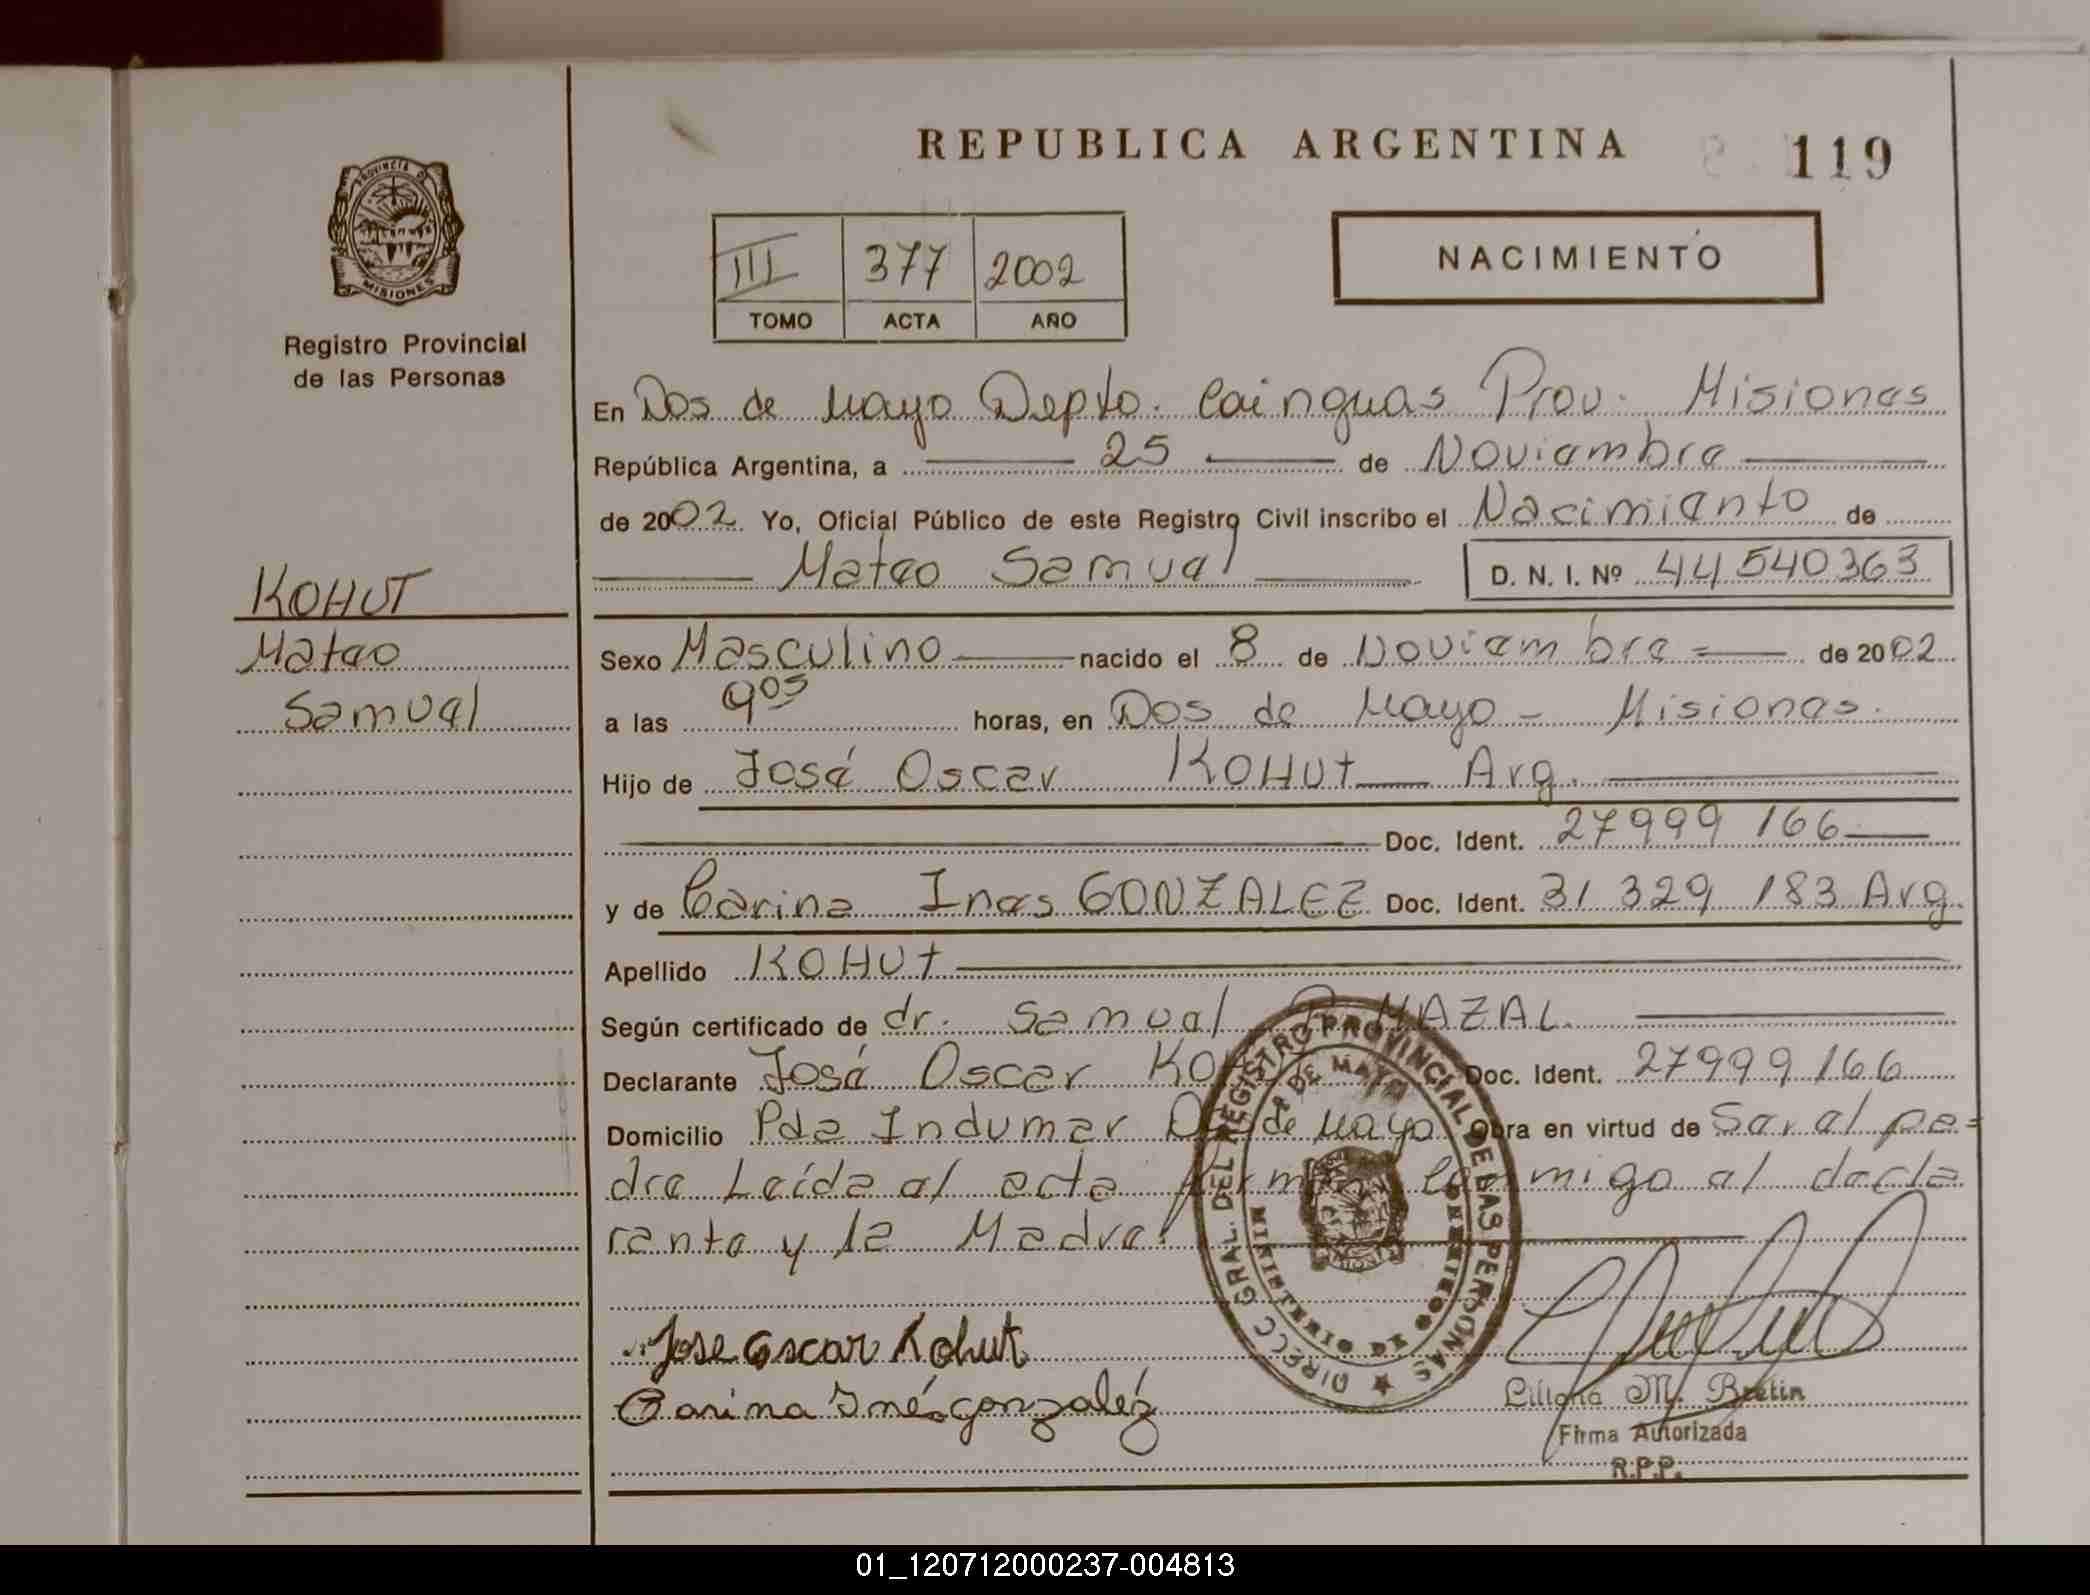 REPUBLICA ARGENTINA
119
PROVINCIA DE
MISIONES
Registro Provincial
de las Personas
III 377 2002
TOMO ACTA AÑO
NACIMIENTO
En Dos de Mayo Depto. Cainguas Prov. Misiones
República Argentina, a 25 de Noviembre
de 2002 Yo, Oficial Público de este Registro Civil inscribo el Nacimiento de
Mateo Samuel D. N. I. Nº 44540363
KOHUT
Mateo
Samuel
Sexo Masculino nacido el 8 de Noviembre de 2002
a las 9os horas, en Dos de Mayo - Misiones.
Hijo de José Oscar KOHUt Arg.
Doc. Ident. 27999 166
y de Carina Ines GONZALEZ Doc. Ident. 31 329 183 Arg.
Apellido KOHUt
Según certificado de dr. Samuel MAZAL
Declarante José Oscar Doc. Ident. 27999166
Domicilio Pda Indumar de Mayo Obra en virtud de Ser el pa=
dre Leída el acta conmigo el decla
rante y la Madre.
DIRECC GRAL. DEL REGISTRO PROVINCIAL DE LAS PERSONAS
DE MAYO
MINISTERIO DE
Jose Oscar Kohut
Carina Inés gonzaléz
Liliana M. Bretin
Firma Autorizada
R.P.P.
01_120712000237-004813